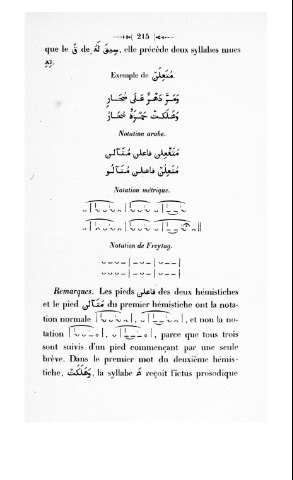 215
que le قُ de سِيقَ لَهُ, elle précède deux syllabes mues
Exemple de مُتَعِلُنْ.
وَمَرَّ دَهْرٌ عَلَى صُحَارٍ
وَهَلَكَتْ جَهْرَةً
Notation arabe.
فاعلى
مُتَعِلُنْ فاعلى
Notation métrique.
Notation de Freytag.
Remarques. Les pieds فاعلى des deux hémistiches
et le pied du premier hémistiche ont la nota-
tion normale , et non la no-
tation , parce que tous trois
sont suivis d'un pied commençant par une seule
brève. Dans le premier mot du deuxième hémis-
tiche, وَهَلَكَتْ, la syllabe هَ reçoit l'ictus prosodique